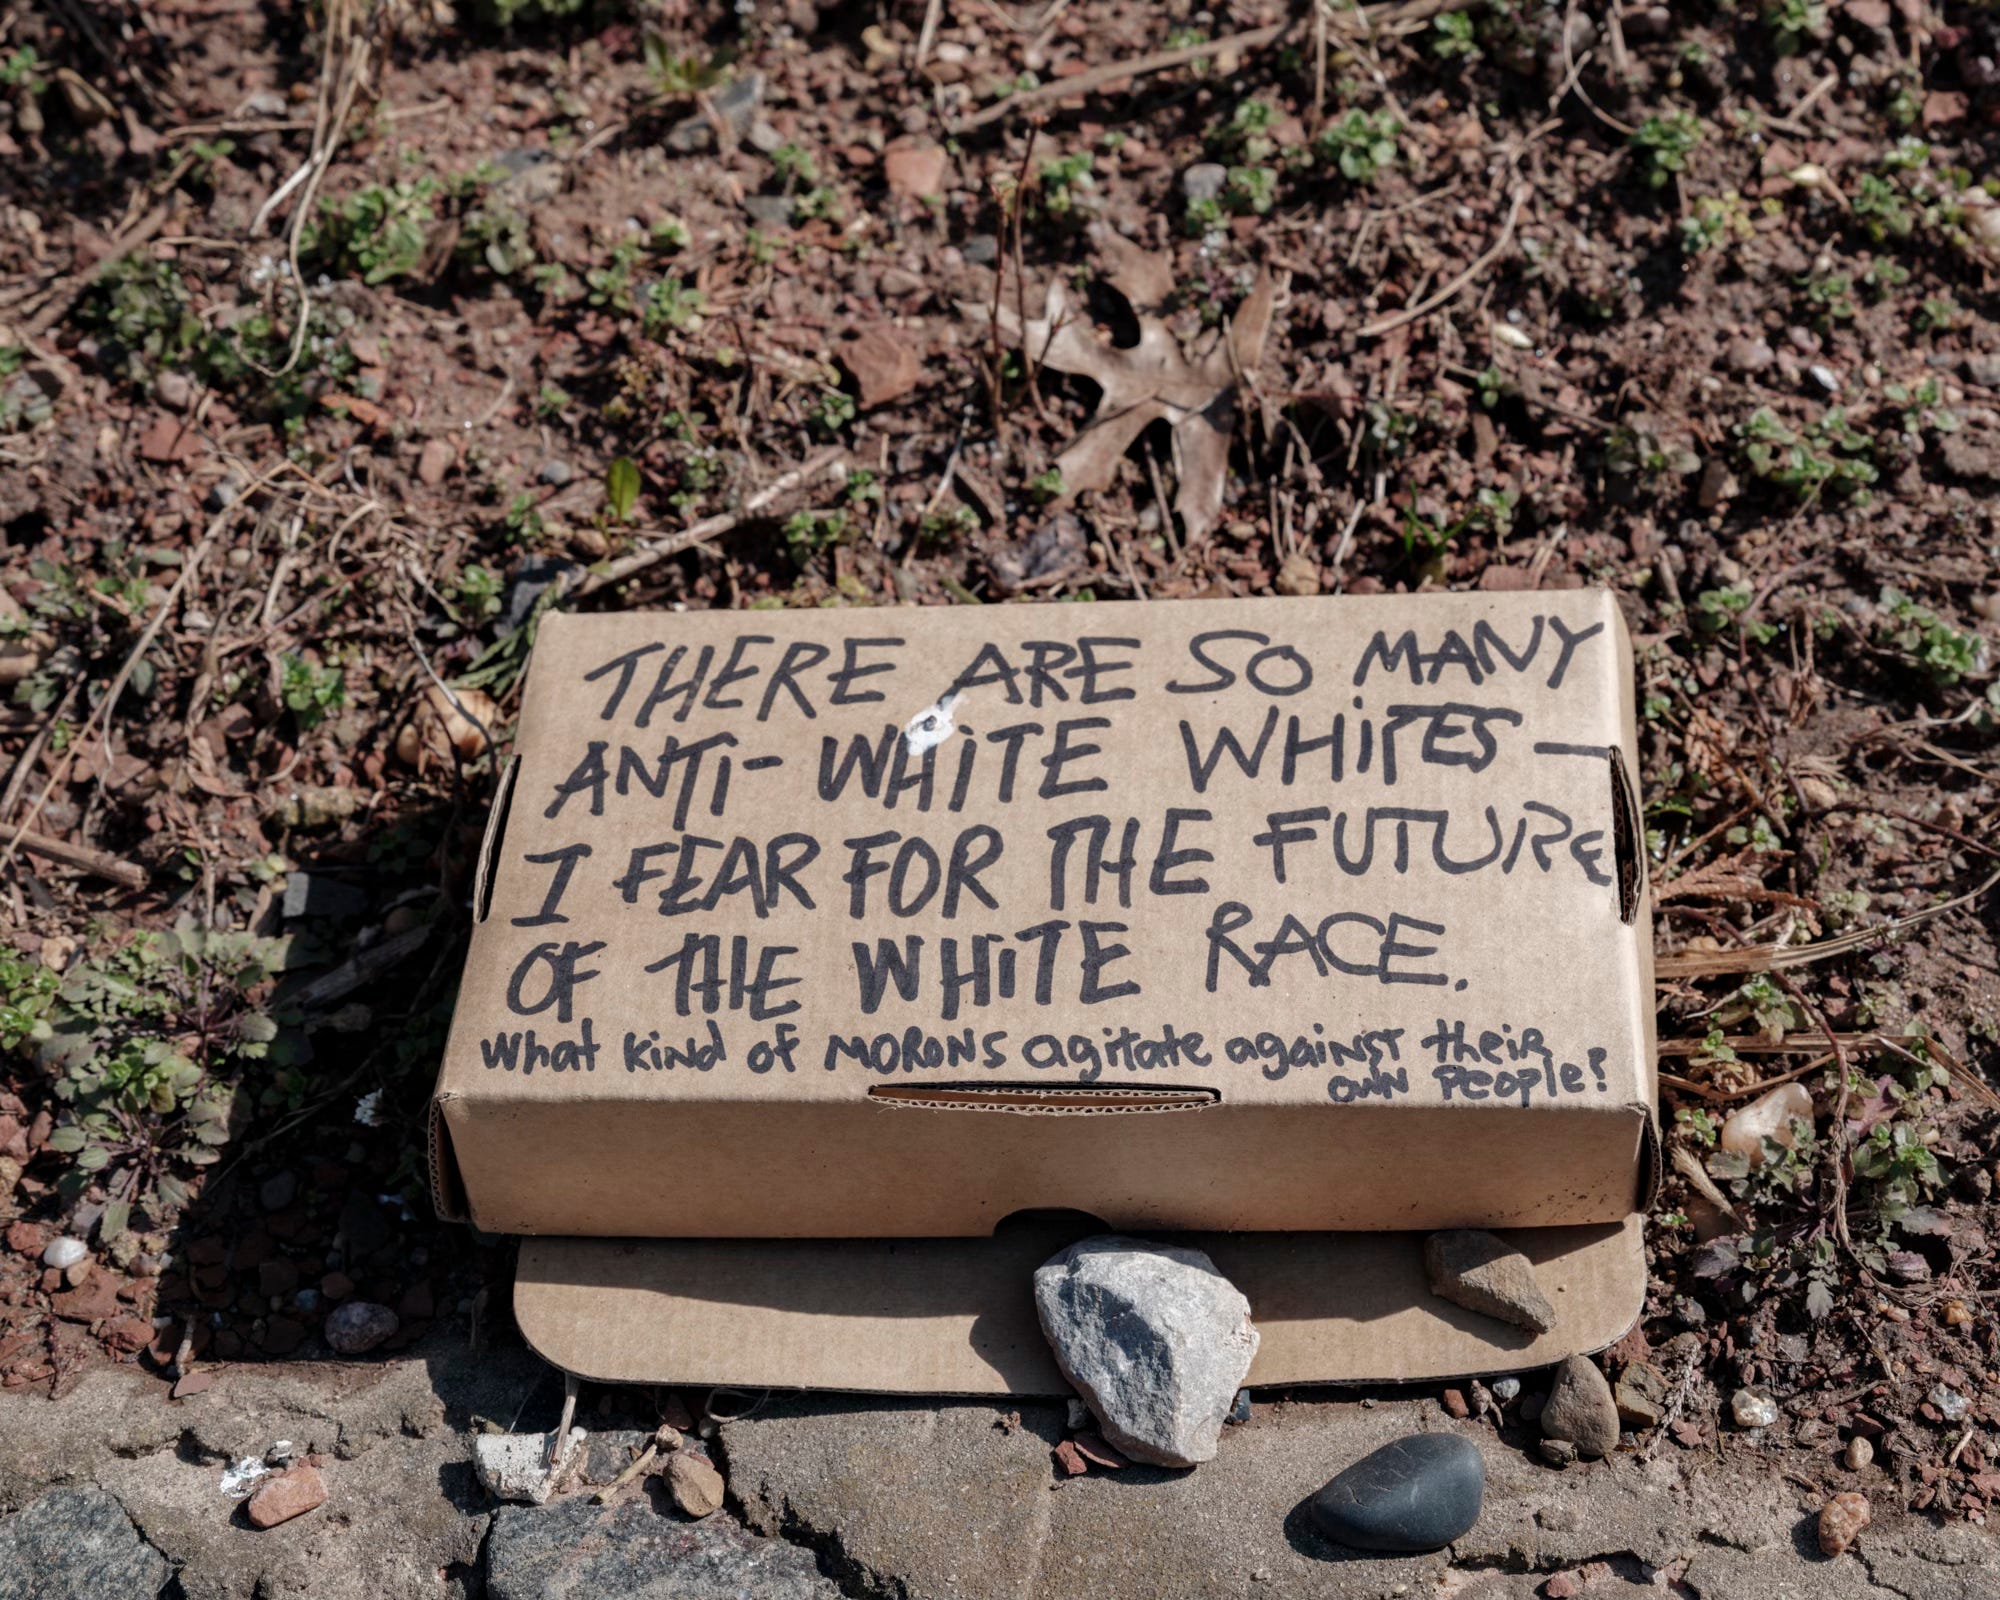 THERE ARE SO MANY
ANTI-WHiTE WHiTES—
I FEAR FOR THE FUTURE
OF THE WHiTE RACE.
What kind of MORONS agitate against their
own people?